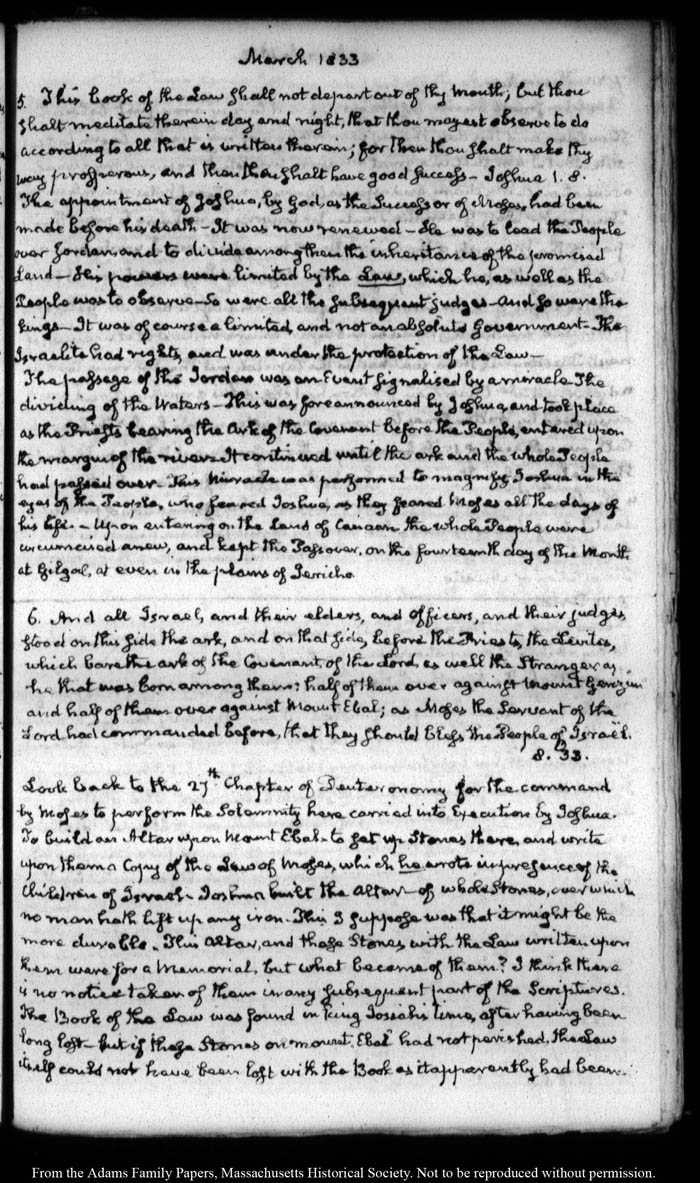 March 1833
5. This book of the Law shall not depart out of thy mouth; but thou
shalt meditate therein day and night, that thou mayest observe to do
according to all that is written therein; for then thou shalt make thy
way prosperous, and then thou shalt have good success - Joshua 1. 8.
The appointment of Joshua, by God, as the Successor of Moses, had been
made before his death - It was now renewed - He was to lead the People
over Jordan, and to divide among them the inheritance of the promised
Land - His powers were limited by the Law, which he, as well as the
People was to observe - So were all the subsequent judges - and so were the
Kings - It was of course a limited, and not an absolute Government - The
Israelite had rights, and was under the protection of the Law -
The passage of the Jordan was an Event signalised by a miracle - The
dividing of the Waters - This was foreannounced by Joshua, and took place
as the Priests bearing the Ark of the Covenant before the People, entered upon
the margin of the river - It continued until the ark and the whole People
had passed over - This Miracle was performed to magnify Joshua in the
eyes of the People, who feared Joshua, as they feared Moses all the days of
his life. - Upon entering on the Land of Canaan the whole People were
circumcised anew, and kept the Passover, on the fourteenth day of the Month
at Gilgal, at even in the plains of Jericho
6. And all Israel, and their elders, and officers, and their judges,
stood on this side the ark, and on that side, before the Priests, the Levites,
which bare the ark of the Covenant, of the Lord, as well the Stranger as
he that was born among them: half of them over against Mount Gerizim
and half of them over against Mount Ebal; as Moses the Servant of the
Lord had commanded before, that they should bless the People of Israel.
8. 33.
Look back to the 27th Chapter of Deuteronomy for the command
by Moses to perform the Solemnity here carried into Execution by Joshua.
To build an Altar upon Mount Ebal - to set up Stones there, and write
upon them a Copy of the Law of Moses, which he wrote in presence of the
Children of Israel - Joshua built the Altar - of whole Stones, over which
no man hath lift up any iron. This I suppose was that it might be the
more durable. This Altar, and those Stones with the Law written upon
them were for a Memorial, but what became of them? I think there
is no notice taken of them in any subsequent part of the Scriptures.
The Book of the Law was found in King Josiah's time, after having been
long lost - but if those Stones on mount Ebal had not perished, the Law
itself could not have been lost with the Book as it apparently had been.
From the Adams Family Papers, Massachusetts Historical Society. Not to be reproduced without permission.